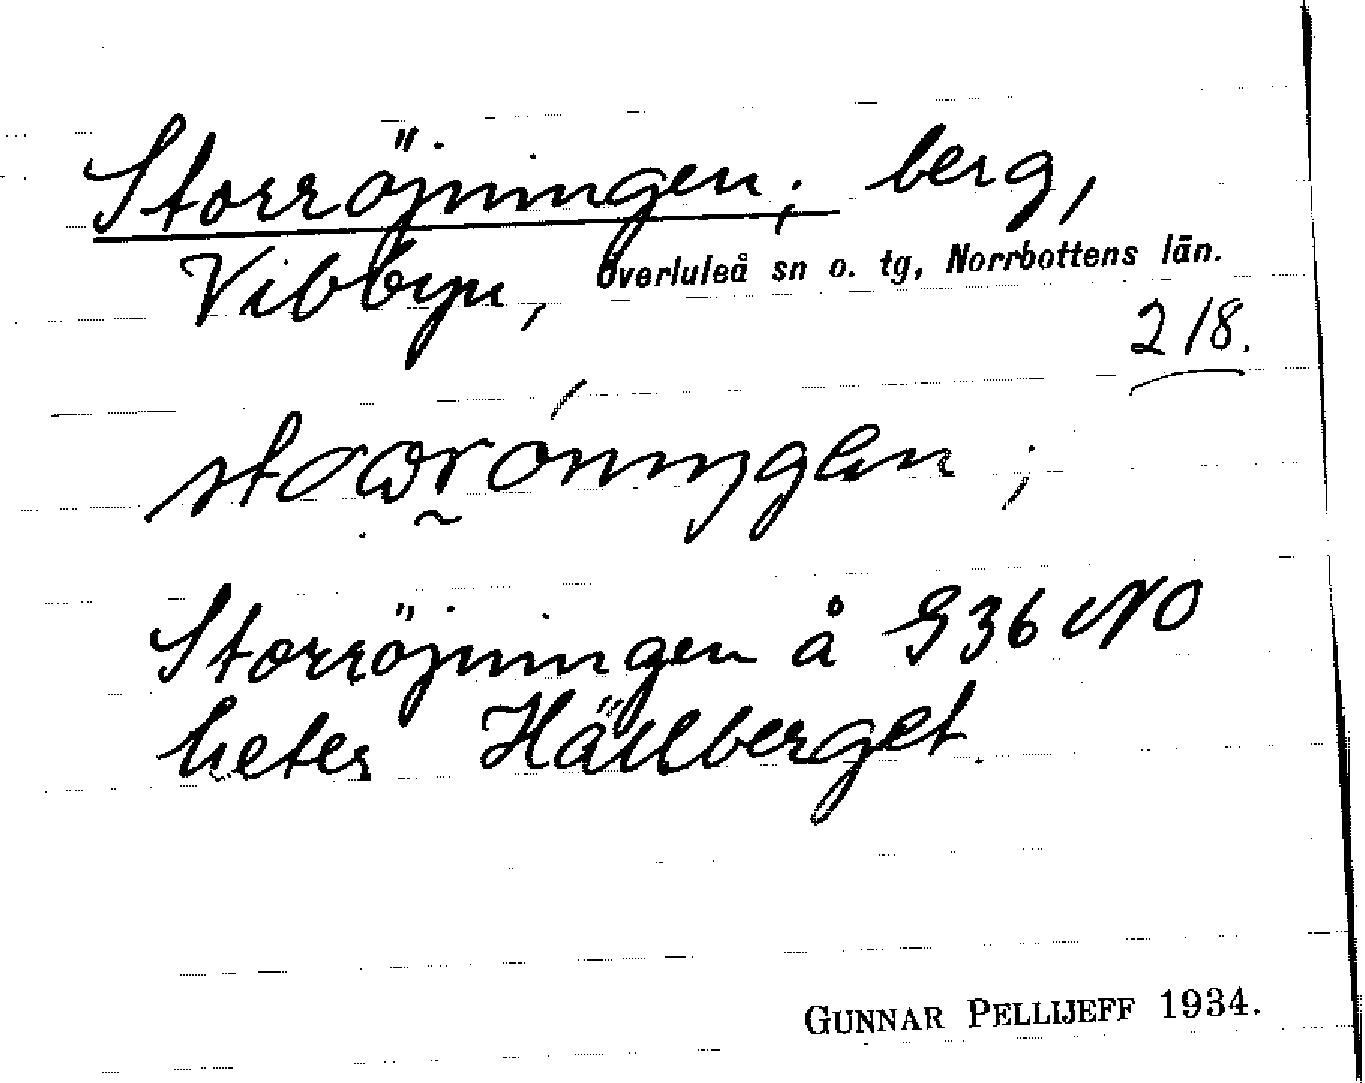 Storröjningen, berg,
Vibbyn, Överluleå sn o. tg, Norrbottens län.
218.
Storröjningen å G36 NO
heter Hällberget
GUNNAR PELLIJEFF 1934.